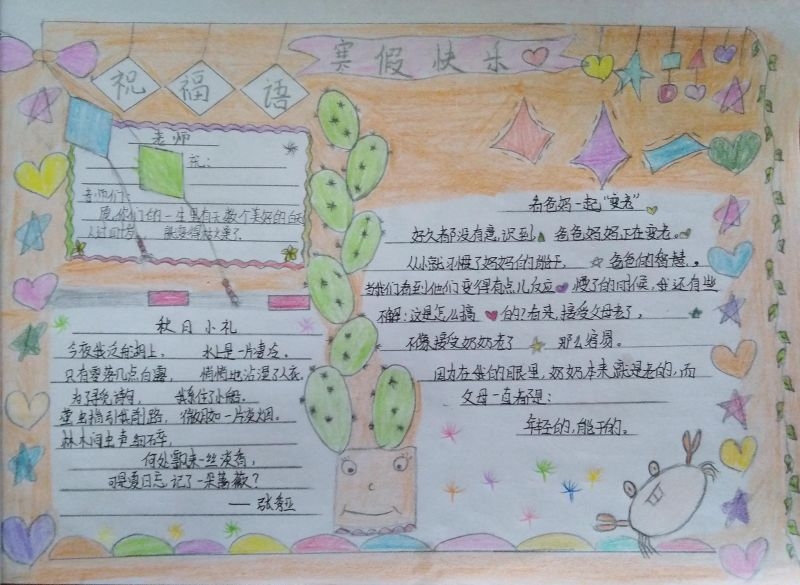 寒假快乐
祝福语
老师
祝:
老师们:
愿你们的一生里有无数个美好的
秋日小礼
今夜我泛舟湖上, 水上是一片凄冷。
只有零落几点白露, 悄悄地沾湿了人衣。
为了寻觅诗句, 我系住了小船。
萤虫指引我前路, 微月如一片淡烟。
林木间虫声
何处飘来一丝淡香,
可是夏日忘记了一朵蔷薇?
——张秀亚
爸妈一起“变老”
好久都没有意识到 爸爸妈妈正在变老。
从小就习惯了妈妈的能干, 爸爸的智慧。
当我们看到他们变得有点儿反应 慢了的时候,我还有些
不解:这是怎么搞 的?看来,接受父母老了,
不像接受奶奶老了 那么容易。
因为在我的眼里,奶奶本来就是老的,而
父母一直都是:
年轻的,能干的。